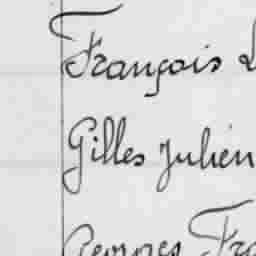 François
Gilles Julien
Georges Fra